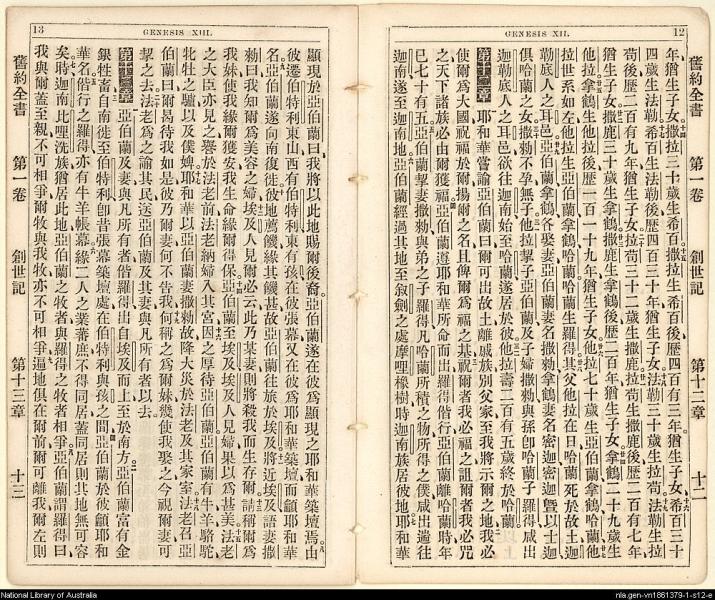 12
GENESIS XII.
舊約全書 第一卷 創世記 第十二章 十二
年猶生子女撒拉三十歲生希百撒拉生希百後歷四百有三年猶生子女希百三十
四歲生法勒希百生法勒後歷四百三十年猶生子女法勒三十歲生拉苟法勒生拉
苟後歷二百有九年猶生子女拉苟三十二歲生撒鹿拉苟生撒鹿後歷二百有七年
猶生子女撒鹿三十歲生拿鶴撒鹿生拿鶴後歷二百年猶生子女拿鶴二十九歲生
他拉拿鶴生他拉後歷一百一十九年猶生子女他拉七十歲生亞伯蘭拿鶴哈蘭他
拉世系如左他拉生亞伯蘭拿鶴哈蘭哈蘭生羅得其父他拉在日哈蘭死於故土迦
勒底人之耳邑亞伯蘭拿鶴各娶妻亞伯蘭妻名撒勑拿鶴妻名密迦密迦曁以士迦
俱哈蘭之女撒勑不孕無子他拉挈子亞伯蘭及子婦撒勑與孫卽哈蘭子羅得咸出
迦勒底人之耳邑欲往迦南始至哈蘭遂居於彼他拉壽二百有五歲終於哈蘭
第十二章 耶和華嘗諭亞伯蘭曰爾可出故土離戚族別父家至我將示爾之地我必
使爾爲大國祝福於爾揚爾之名且俾爾爲福之基祝爾者我必福之詛爾者我必咒
之天下諸族必由爾獲福亞伯蘭遵耶和華所命而出羅得偕行亞伯蘭離哈蘭時年
已七十有五亞伯蘭挈妻撒勑與弟之子羅得凡哈蘭所積之物所得之僕咸出遄往
迦南遂至迦南地亞伯蘭經過其地至叙劍之處摩哩橡樹時迦南族居彼地耶和華
13
GENESIS XIII.
顯現於亞伯蘭曰我將以此地賜爾後裔亞伯蘭遂在彼爲顯現之耶和華築壇焉由
彼遷伯特利東山西有伯特利東有孩在彼張幕又在彼爲耶和華築壇而龥耶和華
名亞伯蘭遂向南復徙彼地薦饑緣其饑甚故亞伯蘭往旅於埃及將近埃及語妻撒
勑曰我知爾爲美容之婦埃及人見爾必云此乃某妻則將殺我而生存爾請稱爾爲
我妹使我緣爾獲安我生命緣爾得保亞伯蘭至埃及埃及人見婦果以爲甚美法老
之大臣亦見之譽於法老前法老納婦入其宮因之厚待亞伯蘭亞伯蘭有牛羊駱駝
牝牡之驢以及僕婢耶和華以亞伯蘭妻撒勑故降大災於法老及其家室法老召亞
伯蘭曰爾曷待我如是彼乃爾妻何不告我何稱之爲爾妹幾使我娶之今視爾妻可
挈之去法老爲之諭其民送亞伯蘭及其妻與凡所有者以去
第十三章 亞伯蘭及妻與凡所有者偕羅得出自埃及而上至於南方亞伯蘭富有金
銀牲畜自南徙至伯特利卽昔張幕築壇處在伯特利與孩之間亞伯蘭於彼龥耶和
華名偕行之羅得亦有牛羊帳幕緣二人之業蕃庶不得同居蓋同居則其地無可容
矣時迦南比哩洗族猶居此地亞伯蘭之牧者與羅得之牧者相爭亞伯蘭謂羅得曰
我與爾蓋至親不可相爭爾牧與我牧亦不可相爭遍地俱在爾前爾可離我爾左則
舊約全書 第一卷 創世記 第十三章 十三
National Library of Australia
nla.gen-vn1861379-1-s12-e